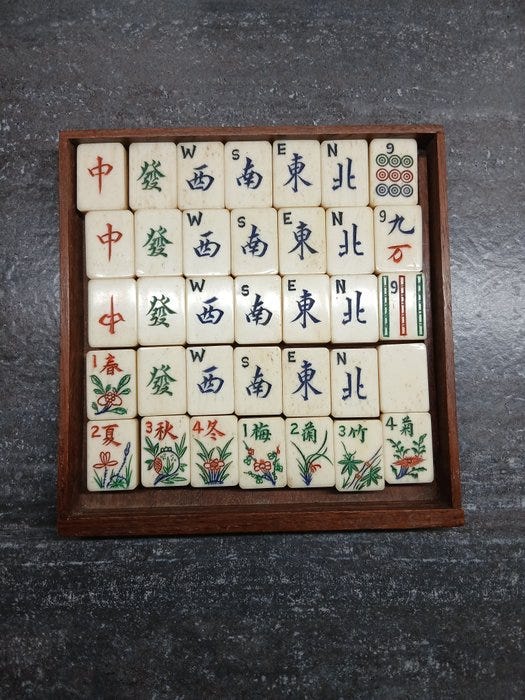 中 發 W 西 S 南 E 東 N 北 9
中 發 W 西 S 南 E 東 N 北 9 九万
中 發 W 西 S 南 E 東 N 北 9
1 春 發 W 西 S 南 E 東 N 北
2 夏 3 秋 4 冬 1 梅 2 蘭 3 竹 4 菊